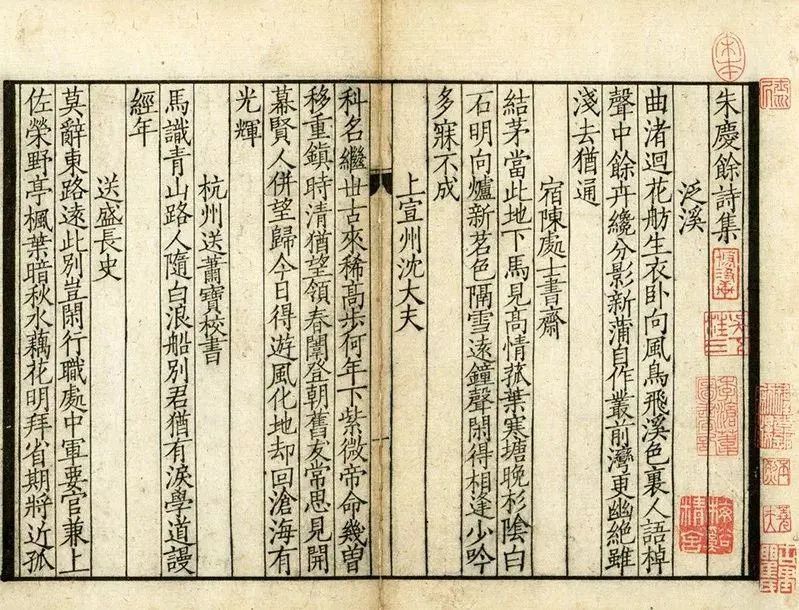 朱慶餘詩集
泛溪
曲渚迴花舫生衣卧向風鳥飛溪色裏人語棹
聲中餘卉纔分影新蒲自作叢前灣更幽絶雖
淺去猶通
宿陳處士書齋
結茅當此地下馬見髙情菰葉寒塘晚杉陰白
石明向爐新茗色隔雪遠鐘聲閑得相逢少吟
多寐不成
上宣州沈大夫
科名繼世古來稀髙步何年下紫微帝命幾曽
移重鎮時清猶望領春闈登朝舊友常思見開
幕賢人併望歸今日得遊風化地却回滄海有
光輝
杭州送蕭寶校書
馬識青山路人隨白浪船别君猶有淚學道謾
經年
送盛長史
莫辭東路逺此别豈閑行職處中軍要官兼上
佐榮野亭楓葉暗秋水藕花明拜省期將近孤
宋本